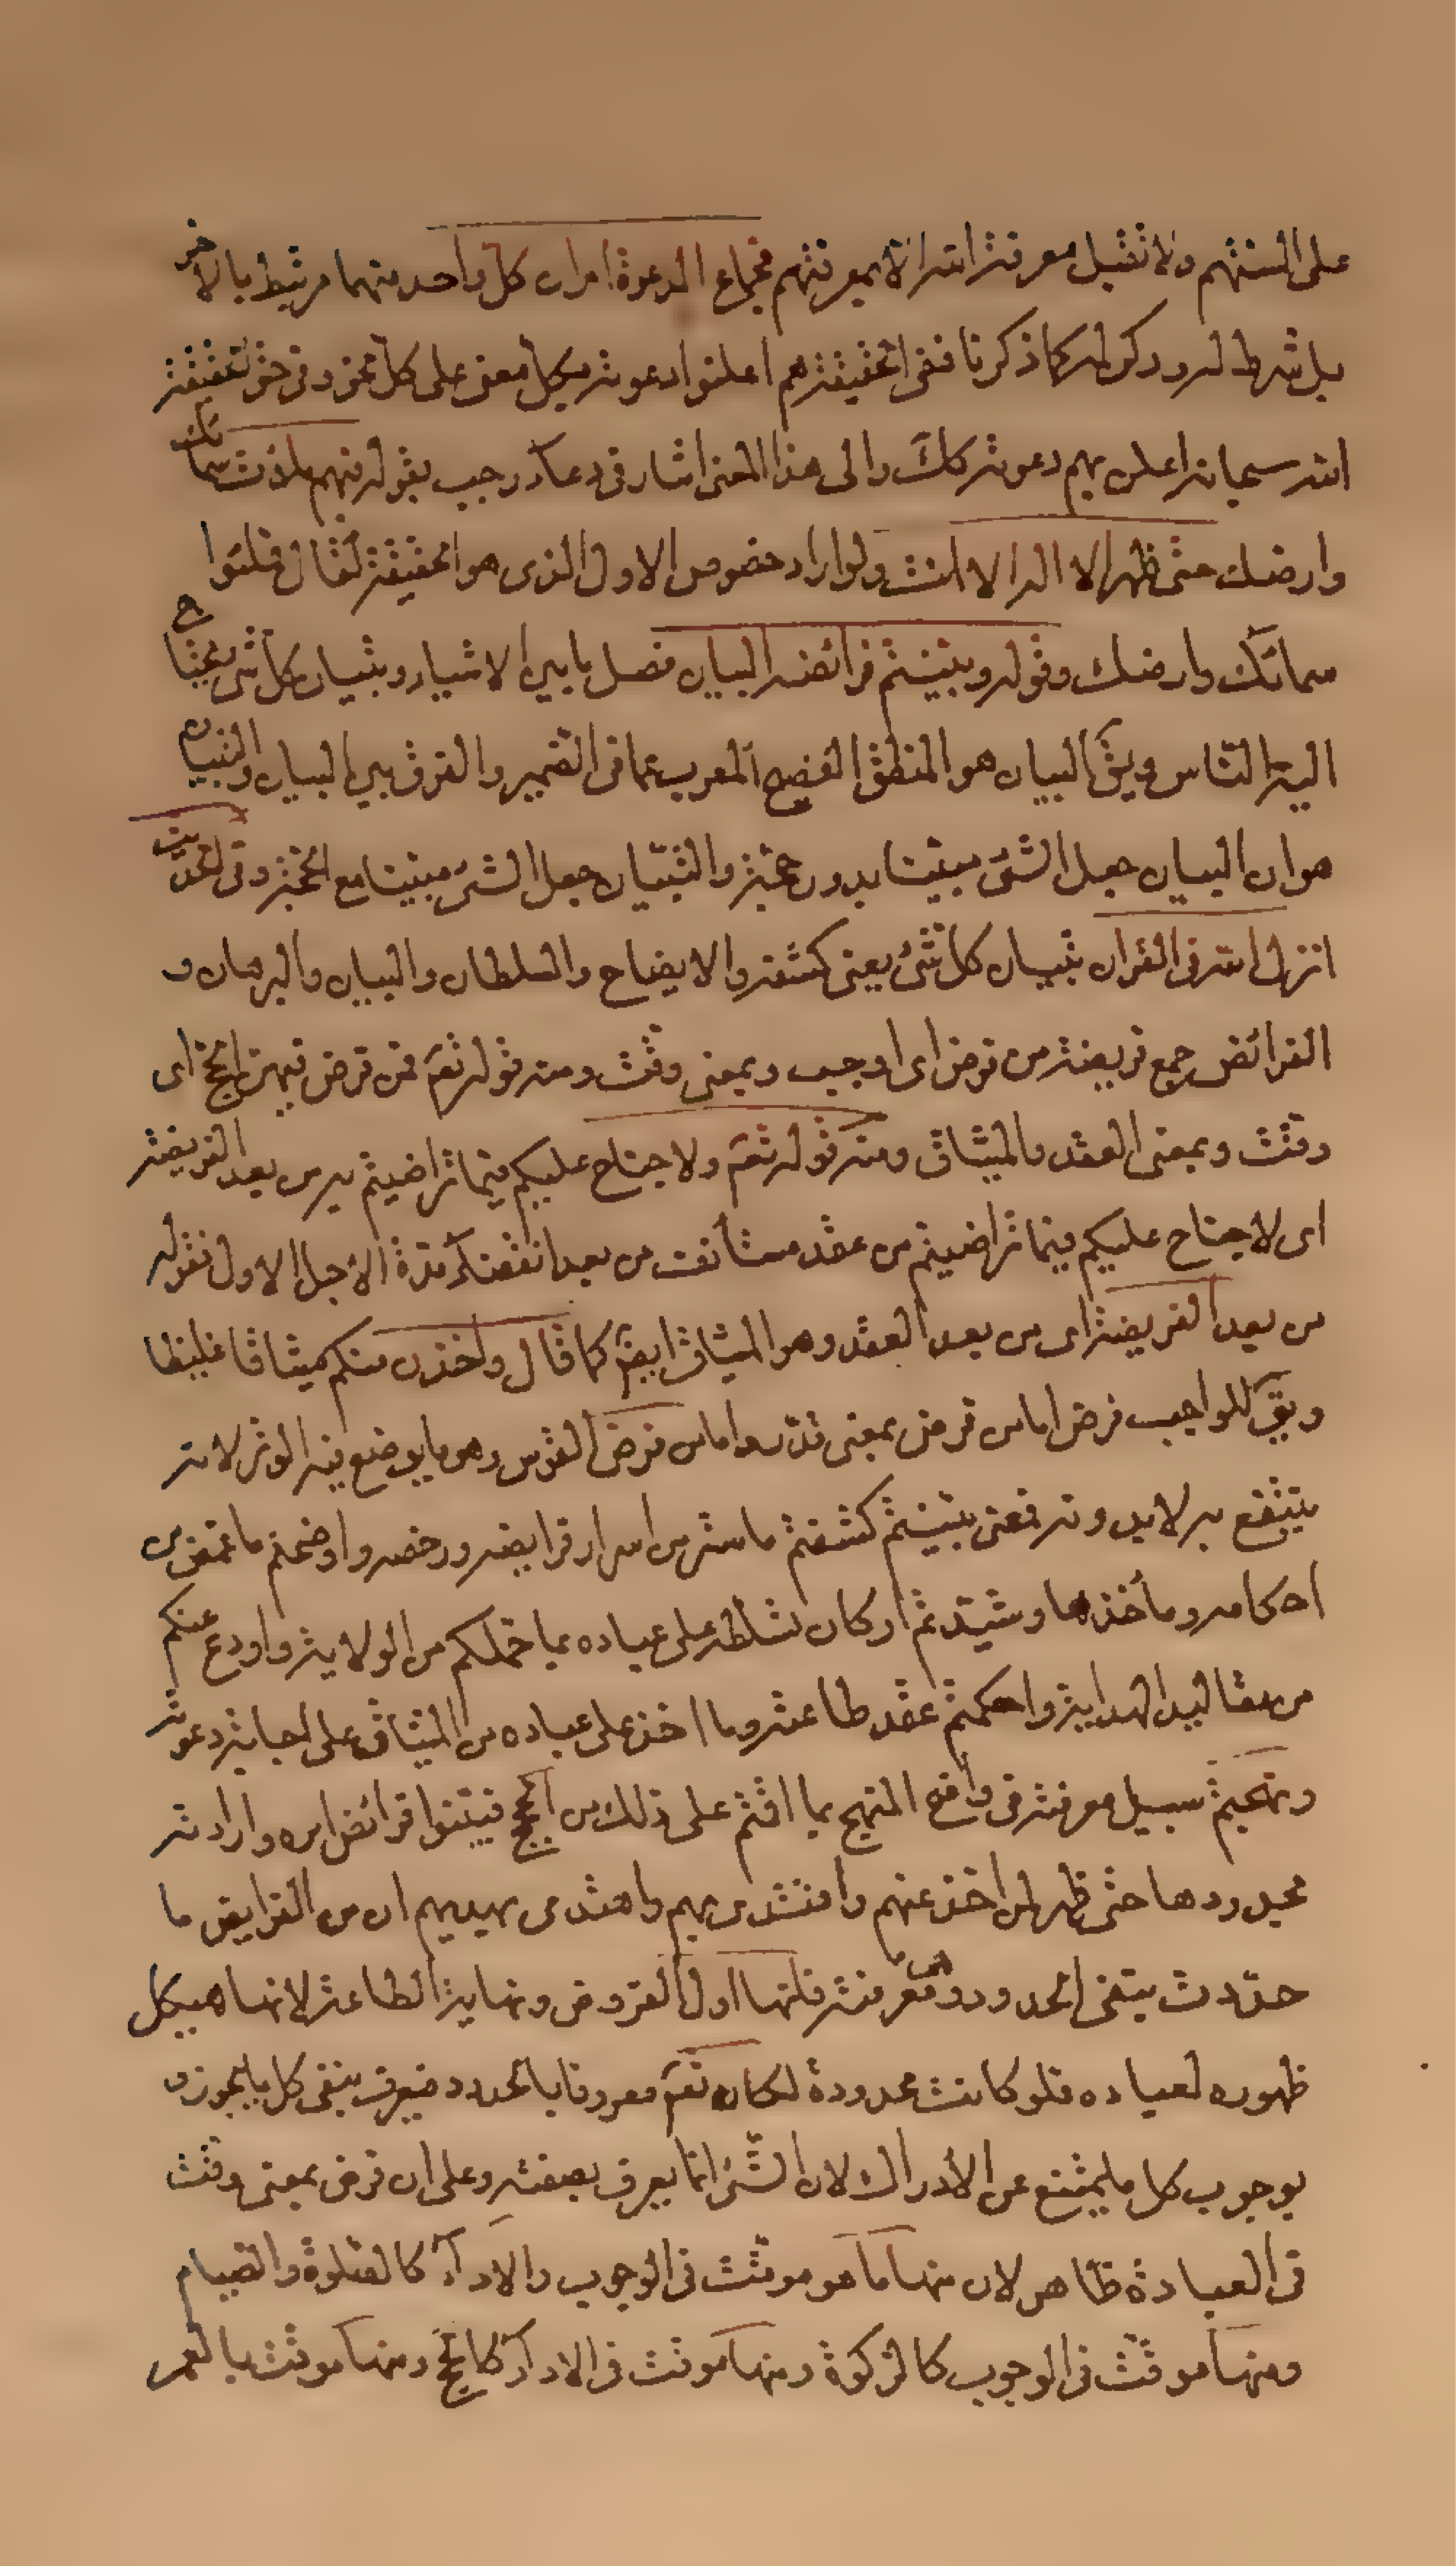 على السنتهم ولا تقبل معرفته الله الا بمعرفتهم فجماع الدعوة امران كل واحد منهما مرتبط بالاخر
بل شرط له وركن له كما ذكرنا ففى الحقيقة هم اعلنوا دعوته بكل معنى على كل نحو وفى حق الحقيقة
الله سبحانه اعلن بهم دعوته كك والى هذا المعنى اشار فى دعاء رجب بقوله فبهم ملات سمائك
وارضك حتى ظهر الا اله الا انت ولو اراد خصوص الاول الذى هو الحقيقة لقال فملئوا
سمائك وارضك وقوله وبينتم فرائضه البيان فصل ما بين الاشياء وتبيان كل شئ يحتاج
اليه الناس ويق البيان هو المنطق الفصيح المعرب عما فى الضمير والفرق بين البيان والتبيان
هو ان البيان جعل الشئ مبينا بدون حجة والتبيان جعل الشئ مبينا مع الحجة وفى الحديث
انزل الله فى القران تبيان كل شئ يعنى كشفه والايضاح والسلطان والبيان والبرهان و
الفرائض جمع فريضة من فرض اى اوجب وبمعنى وقت ومنه قوله تعم فمن فرض فيهن الحج اى
وقت وبمعنى العقد والميثاق ومنه قوله تعم ولا جناح عليكم فيما تراضيتم به من بعد الفريضة
اى لا جناح عليكم فيما تراضيتم من عقد مستأنف من بعد انقضاء مدة الاجل الاول فقوله
من بعد الفريضة اى من بعد العقد وهو الميثاق ايضا كما قال واخذن منكم ميثاقا غليظا
ويق للواجب فرض اما من فرض بمعنى قدر واما من فرض القوس وهو ما يوضع فيه الوتر لانه
ينتفع به لا بدونه فمعنى بينتم كشفتم ما ستر من اسرار فرايضه ورخصه واوضحتم ما غمض من
احكامه ومأخذها وشيدتم اركان تسلطه على عباده بما حملكم من الولاية واودع عندكم
من مقاليد الهداية واحكمتم عقد طاعته وما اخذ على عباده من الميثاق على اجابة دعوته
ونهجتم سبيل معرفته فى واضح المنهج بما اقمتم على ذلك من الحجج فبينوا فرائض امره وارادته
بحدودها حتى ظهر لمن اخذ عنهم واقتدى بهم واهتدى بهديهم ان من الفرايض ما
حددت بنفى الحدود وهى معرفته فانها اول الفروض ونهاية الطاعة لانها هيكل
ظهوره لعباده فلو كانت محدودة لكان تعم معروفا بالحدود فيعرف بنفى كل ما يجوز و
بوجوب كل ما يمتنع عن الادراك لان الشئ انما يعرف بصفته وعلى ان فرض بمعنى وقت
فى العبادة ظاهر لان منها ما هو موقت فى الوجوب والاداء كالصلوة والصيام
ومنها موقت فى الوجوب كالزكوة ومنها موقت فى الاداء كالحج ومنها موقت بالعمر